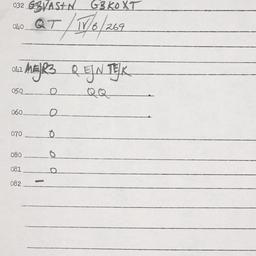 032 GBVASTN GBKOXT
040 QT / IV / 6 / 269
042 MEJR3 Q EJN TEJK
050 O QQ .
060 O .
070 O
080 O
081 O
082 –